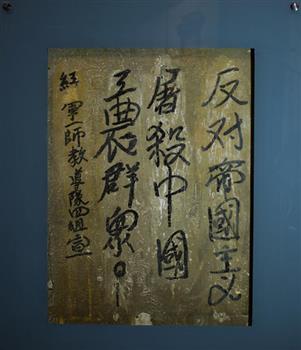 反对帝國主义
屠殺中國
工農群眾。!
紅軍一師教導隊四組宣